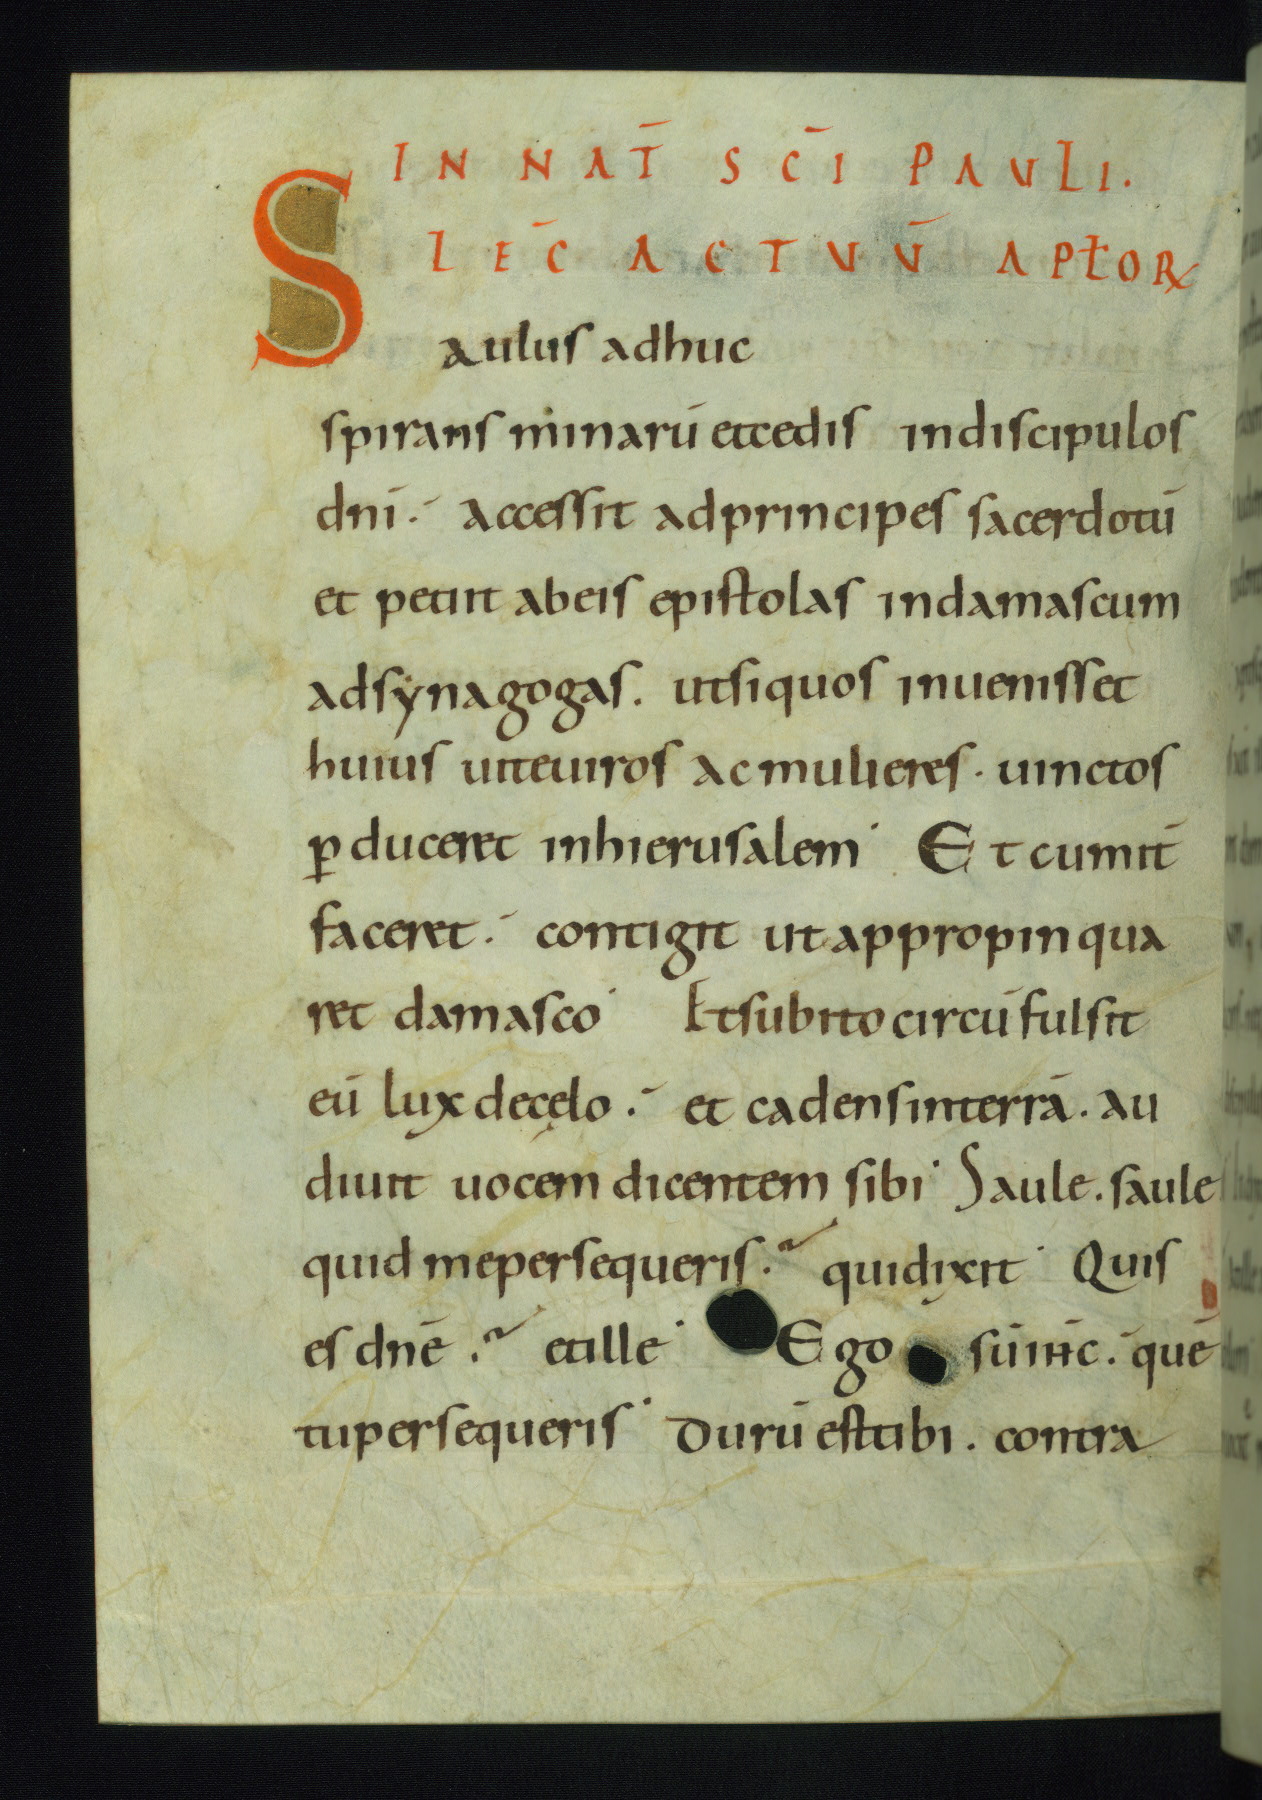 IN NAT̄ SC̄I PAULI.
LEC̄ ACTUŪ APƚOꝝ
Saulus adhuc
spirans minarū et cedis in discipulos
dn̄i. accessit ad principes sacerdotū
et petiit ab eis epistolas in damascum
ad sẏnagogas. ut si quos inuenisset
huius uitę uiros ac mulieres. uinctos
ꝑduceret in hierusalem. Et cum it̄
faceret. contigit ut appropinqua
ret damasco. Et subito circūfulsit
eū lux de cęlo. et cadens in terrā. au
diuit uocem dicentem sibi. Saule. saule
quid me persequeris. qui dixit. Quis
es dn̄e. et ille. Ego sū ih̄c. quē
tu persequeris. Durū est tibi. contra